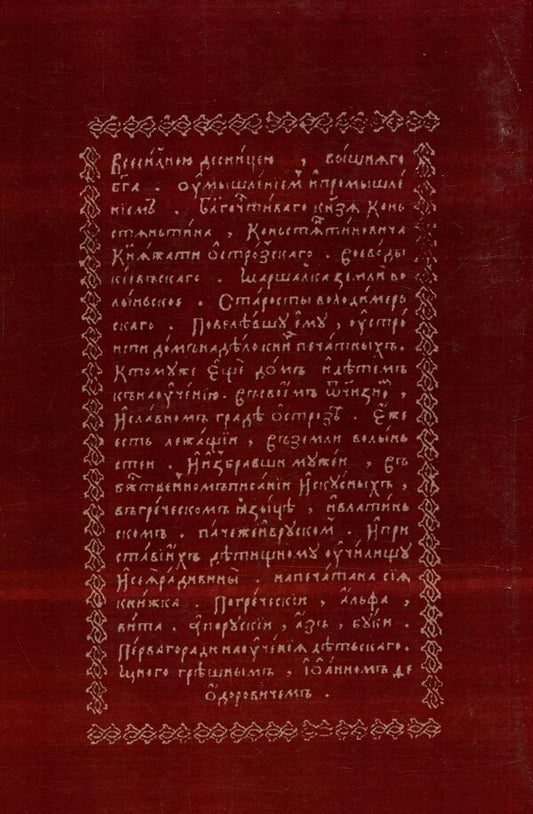 Всеси́лною десни́цею , вы́шняго
бг҃а . Оу҆мышле́нїемъ и҆промышле́
нїемъ . Бл҃гочⷭ҇ти́ваго кн҃зя Конь
стянти́на , Коньстянти́новича
Кня́жати Ѻ҆стро́зскаго . воево́ды
кїевъскаго . Маршалка земли́ во
лы́ньское . Ста́росты володи́мерь
скаго . Повеле́вшу є҆му̀ , оу҆стро́
ити до́мъ на дѣ́ло кни́гъ печа́тныхъ .
Ктомуже є҆щѐ до́мъ и҆дѣ́темъ
къ наоуче́нїю . въ свое́мъ ѿчи́зномъ ,
и҆сла́вномъ гра́дѣ Ѻ҆стро́зѣ . є҆́же
есть лежа́щїи , въ земли́ волы́нь
стеи . И҆ и҆збра́вши му́жеи , въ
бжⷭ҇твенномъ писа́нїи и҆ску́сныхъ ,
въ гре́ческомъ ꙗ҆зы́цѣ , и҆влати́нь
скомъ . па́чеже и҆вру́скомъ . И҆при
ста́ви и҆́хъ дѣти́щному оу҆чи́лищу
И҆сея̀ ра́ди вины̀ . напеча́тана сїя̀
кни́жка . Погре́чески , а҆́льфа ,
ви́та . а҆пору́скїи , а҆́зъ , бу́ки .
Пе́рваго ра́ди наоуче́нїя дѣ́тьскаго .
многогрѣ́шнымъ , І҆ѡа́нномъ Ѳе
ѻ҆́доровичемъ .